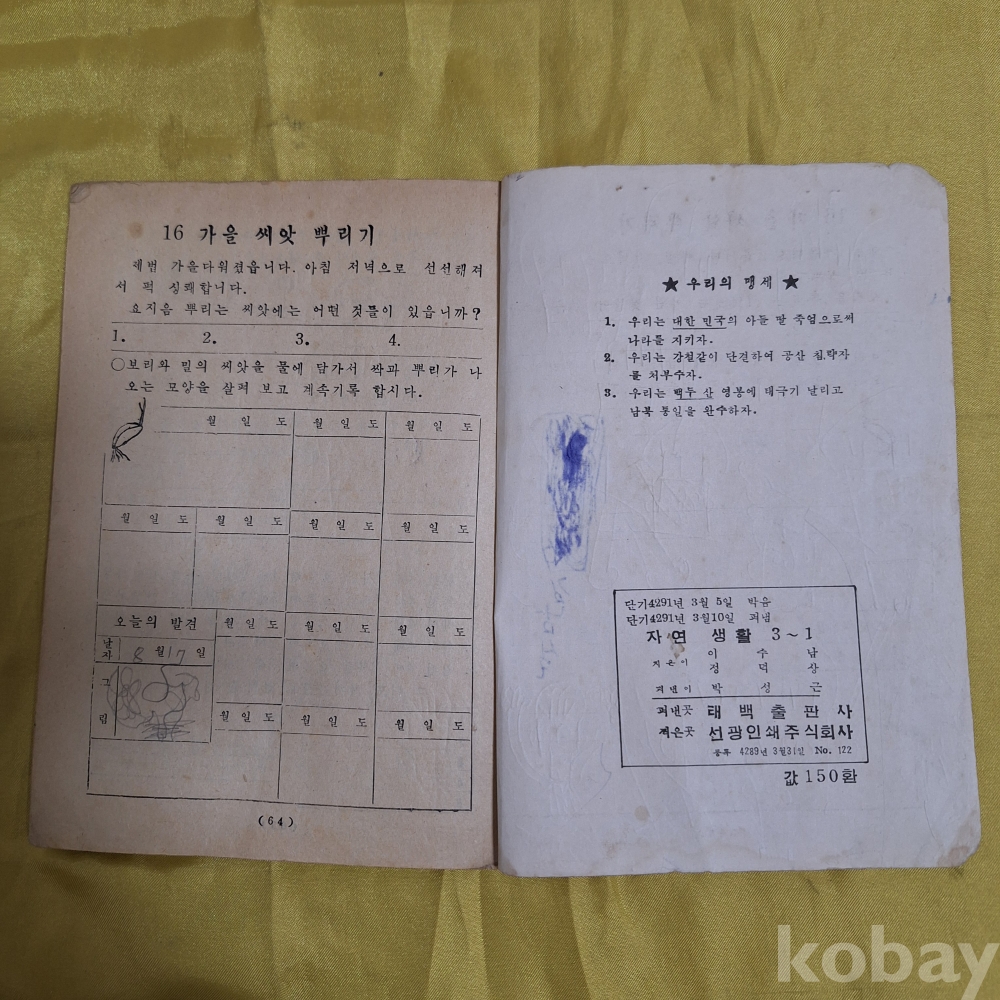 16 가을 씨앗 뿌리기
제법 가을다워졌읍니다. 아침 저녁으로 선선해져
서 퍽 싱쾌합니다.
요지음 뿌리는 씨앗에는 어떤 것들이 있읍니까?
1. 2. 3. 4.
○보리와 밀의 씨앗을 물에 담가서 싹과 뿌리가 나
오는 모양을 살펴 보고 계속기록 합시다.
월 일 도 월 일 도 월 일 도
월 일 도 월 일 도 월 일 도 월 일 도
오늘의 발견 월 일 도 월 일 도 월 일 도
날자 8월 17일
그림
월 일 도 월 일 도 월 일 도
(64)
★ 우리의 맹세 ★
1. 우리는 대한 민국의 아들 딸 죽엄으로써
나라를 지키자.
2. 우리는 강철같이 단결하여 공산 침략자
를 처부수자.
3. 우리는 백두 산 영봉에 태극기 날리고
남북 통일을 완수하자.
단기4291년 3월 5일 박음
단기4291년 3월10일 펴냄
자연 생활 3~1
지은이 이 수 남
정 덕 상
펴낸이 박 성 근
펴낸곳 태백출판사
찍은곳 선광인쇄주식회사
등록 4289년 3월31일 No. 122
값 150환
kobay